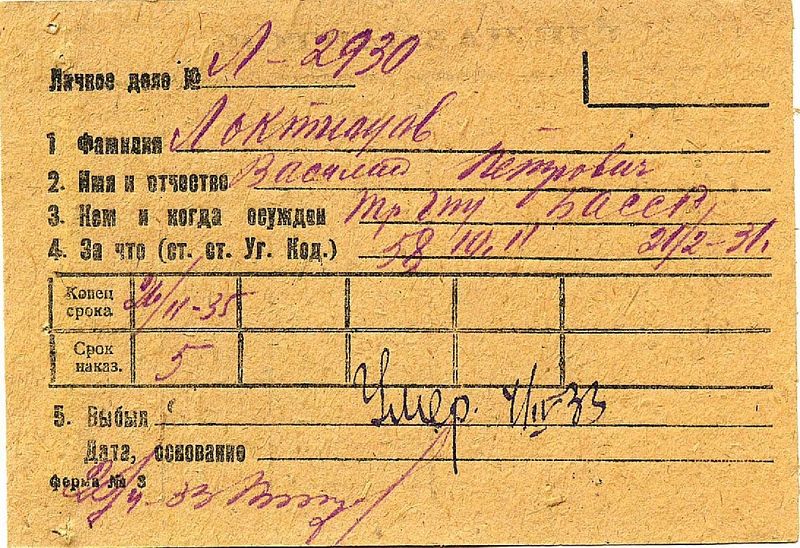 Личное дело № Л-2930
1 Фамилия Локтионов
2. Имя и отчество Василий Петрович
3. Кем и когда осужден Тр. ГПУ БАССР
4. За что (ст. ст. Уг. Код.) 58 10, 11 21/2-31.
Конец срока 26/11-35
Срок наказ. 5
5. Выбыл Умер. 4/IV-33
Дата, основание
форма № 3